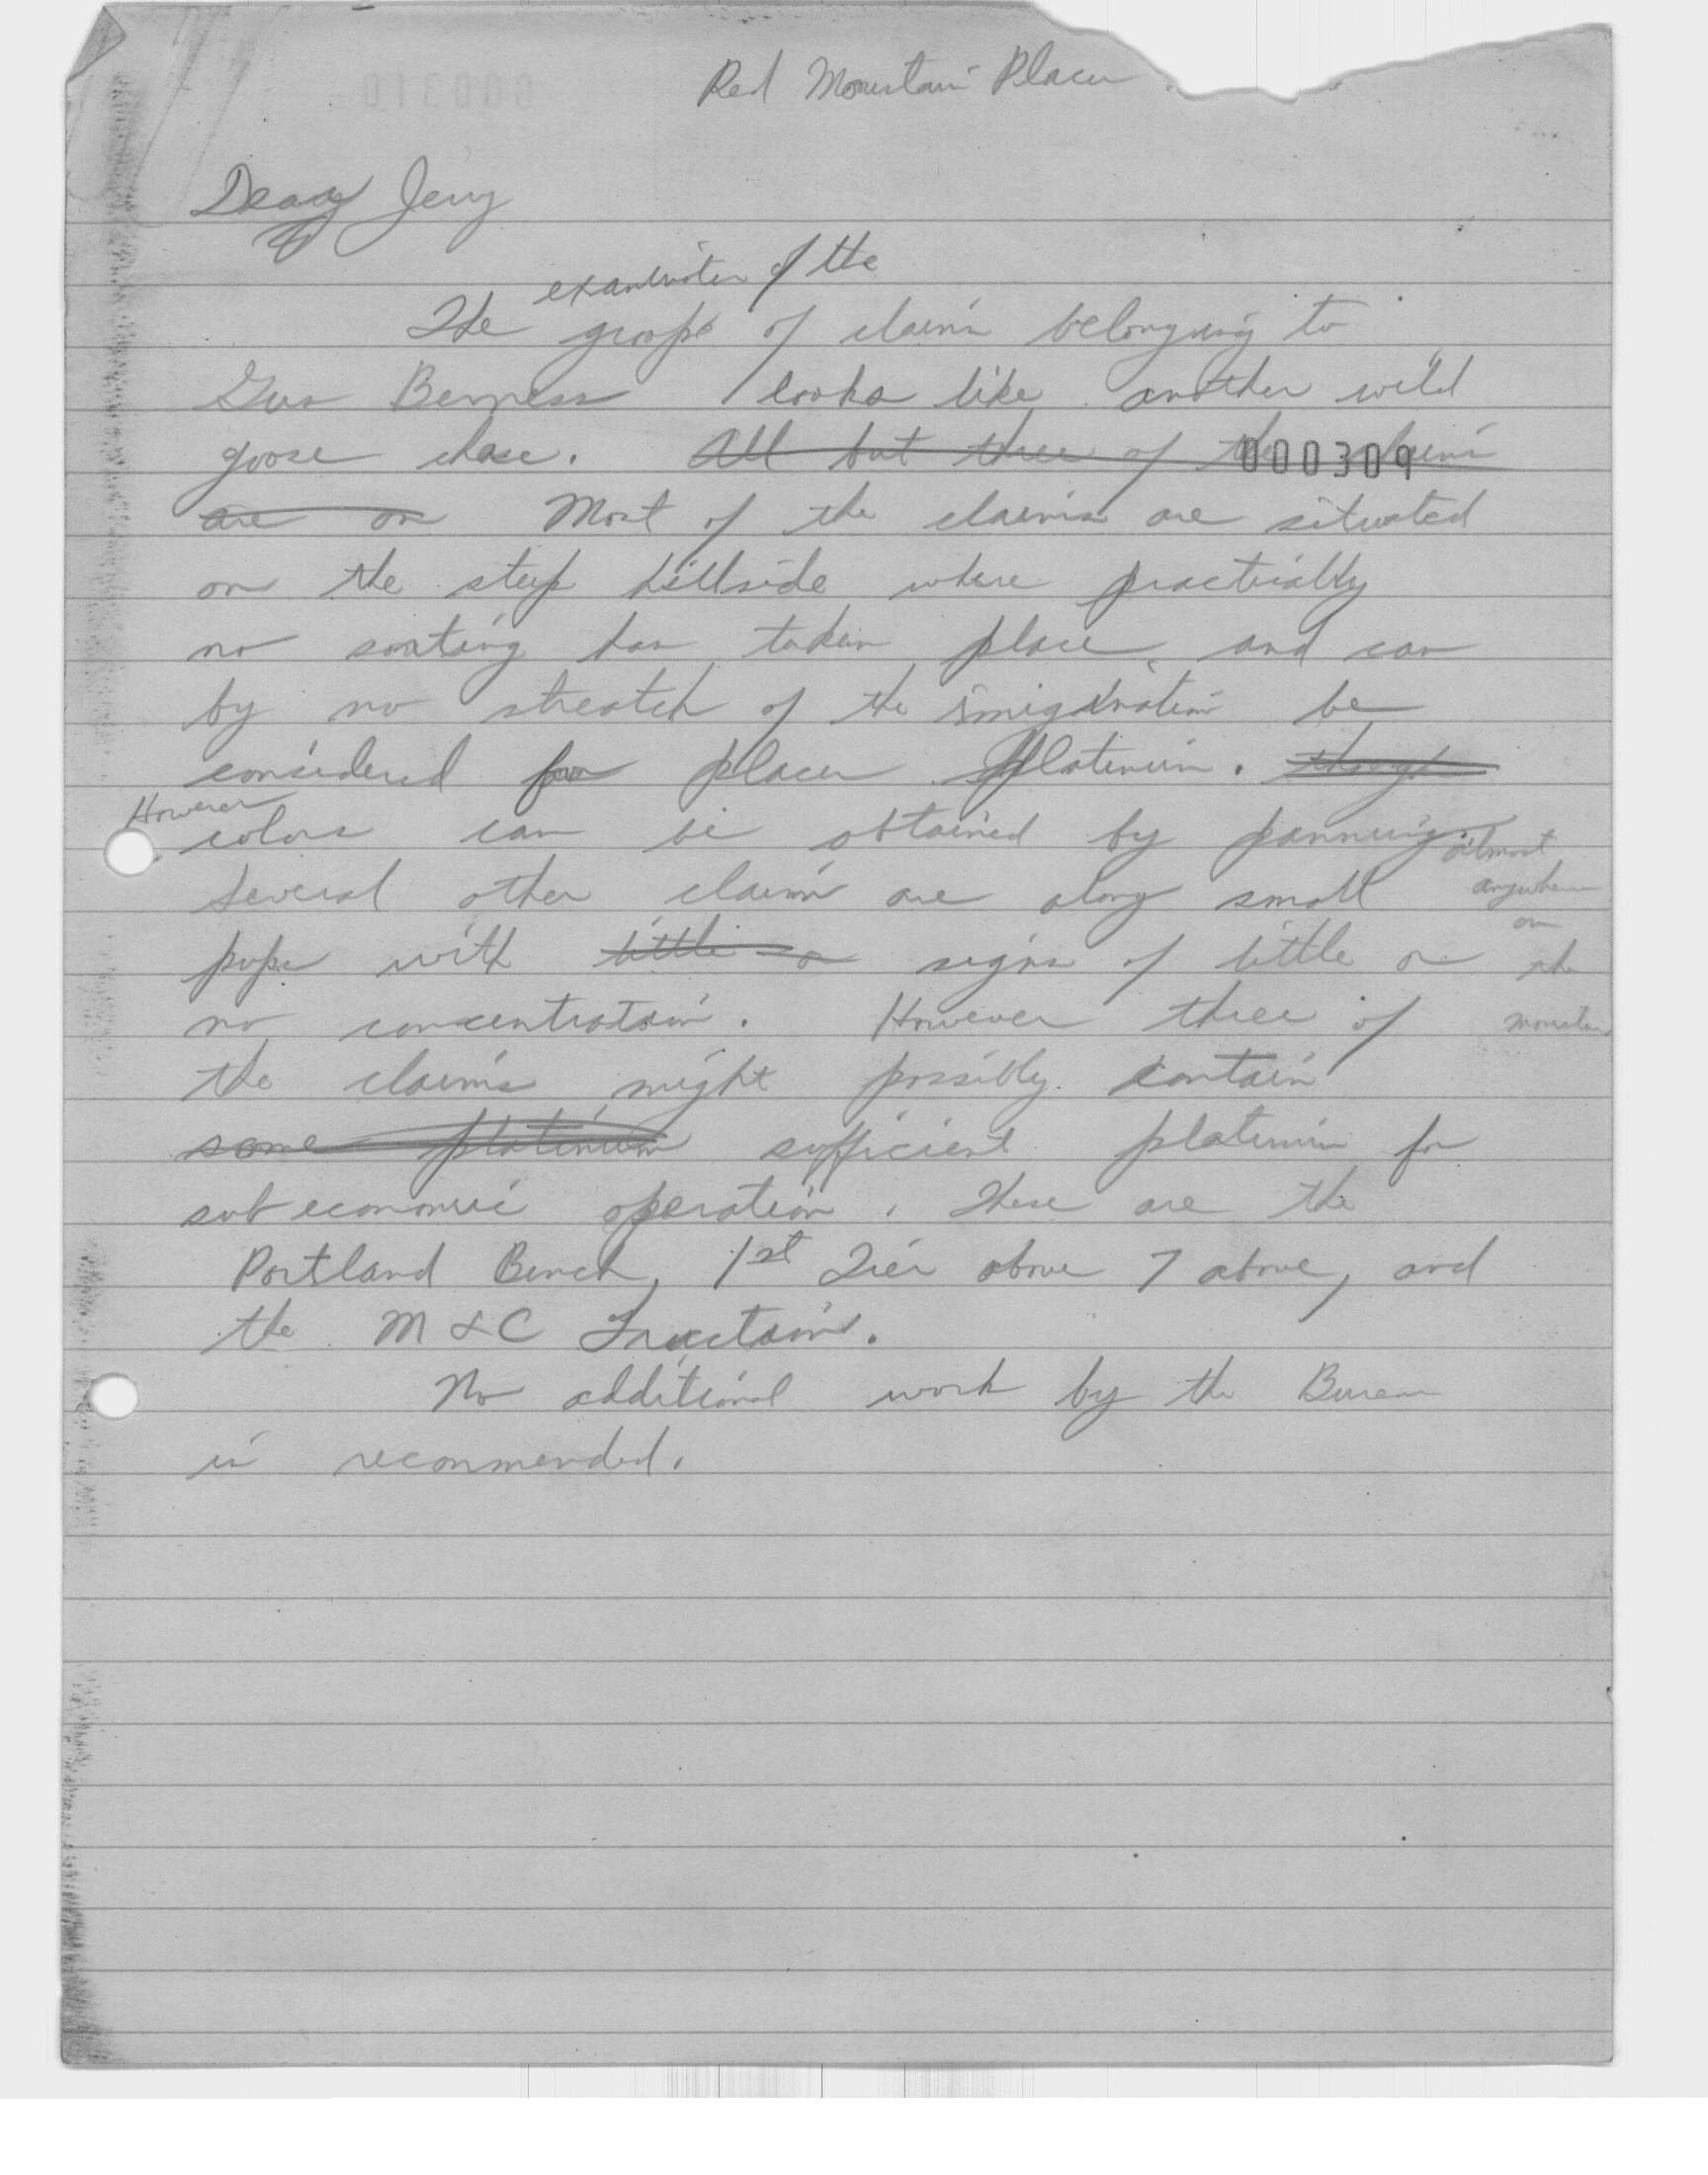 Red Mountain Placer
Dear Jerry
examination of the
The groups of claims belonging to
Gus Berness looks like another wild
goose chase. All but three of the claims
000309
are on Most of the claims are situated
on the steep hillside where practically
no sorting has taken place, and can
by no streatch of the imigination be
considered for placer platinum. though
However
colors can be obtained by panning almost
anywhere
on
the
mountain
Several other claims are along small
pups with little or signs of little or
no concentration. However three of
the claims might possibly contain
some platinum sufficient platinum for
sub economic operation. These are the
Portland Bench, 1st Tier above 7 above, and
the M & C Fractions.
No additional work by the Bureau
is recommended.